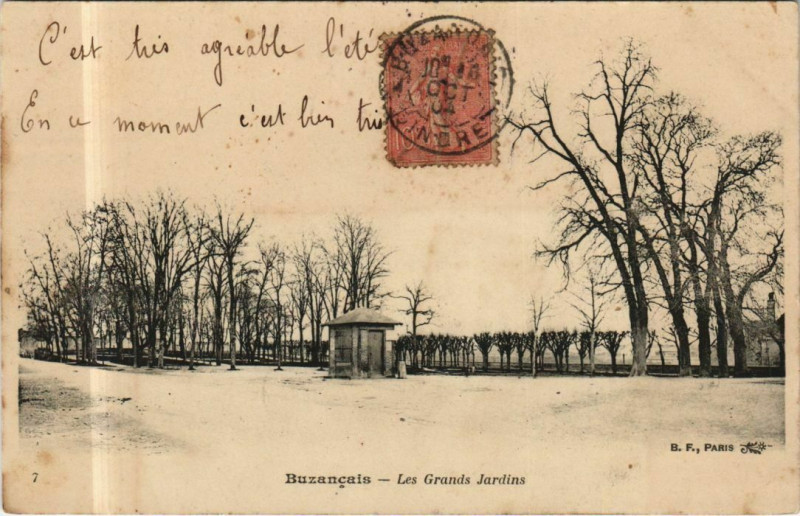 C'est très agréable l'été
En ce moment c'est bien
BUZANÇAIS
OCT
INDRE
B. F., PARIS
7
Buzançais — Les Grands Jardins